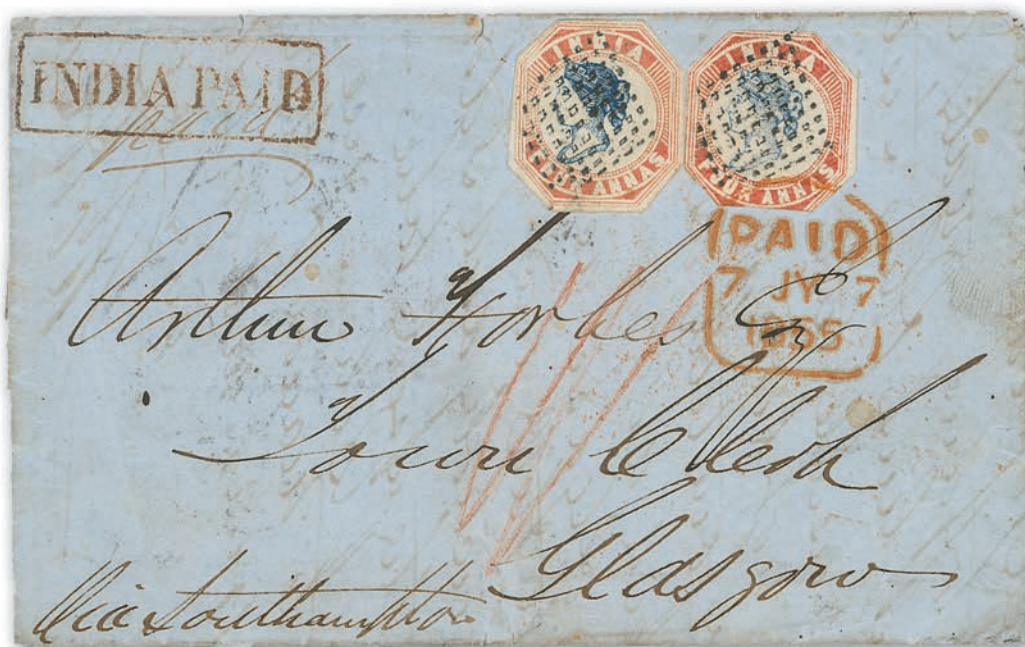 INDIA PAID
paid
INDIA
FOUR ANNAS
INDIA
FOUR ANNAS
PAID
7 JY 7
1855
Arthur Forbes Esqr
Town Clerk
Glasgow
Via Southampton